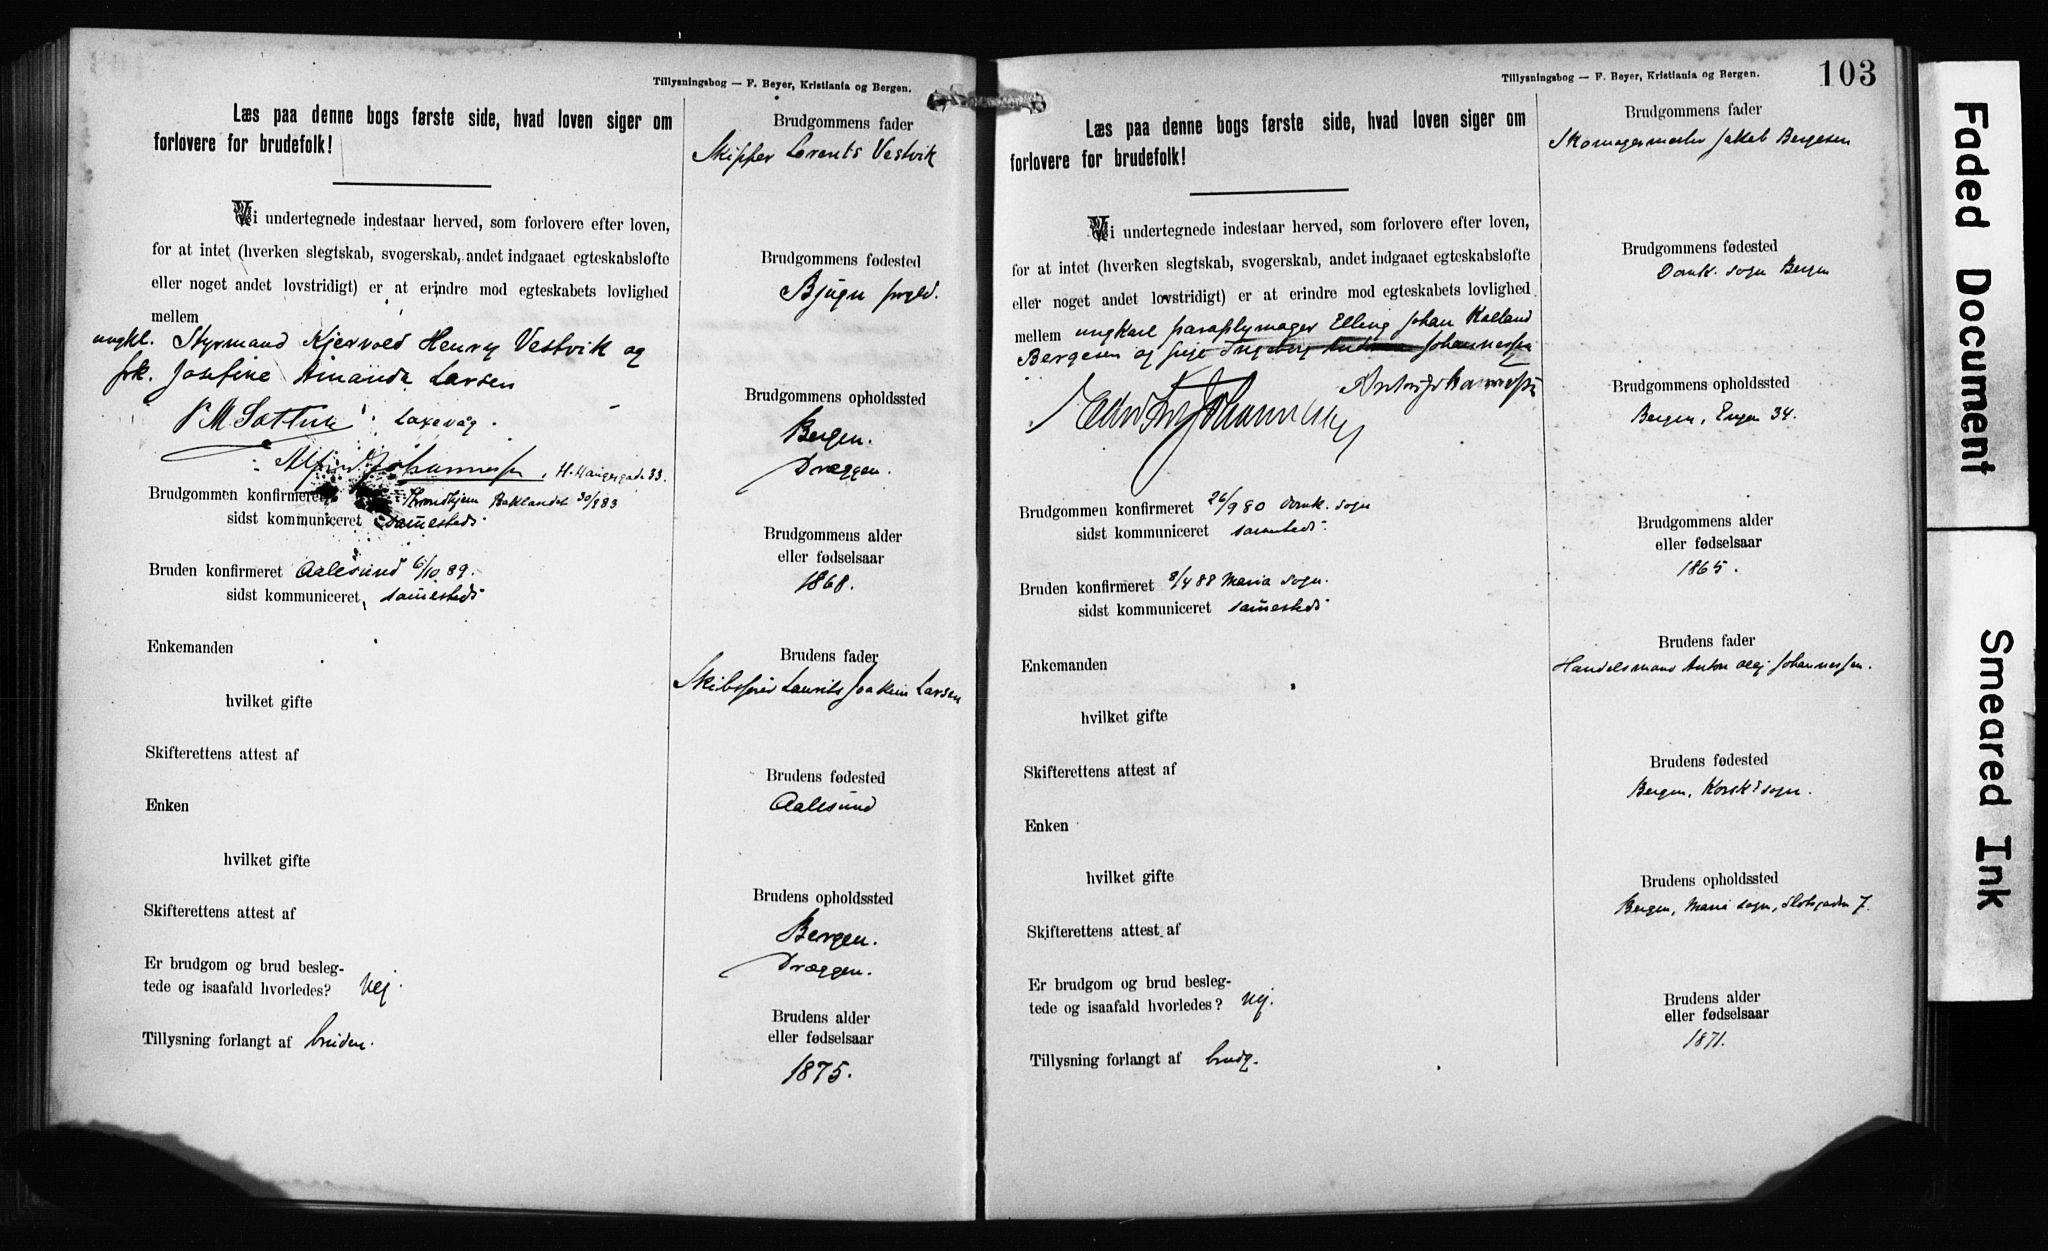 Tillysningsbog — F. Beyer, Kristiania og Bergen.
Læs paa denne bogs første side, hvad loven siger om
forlovere for brudefolk!
Vi undertegnede indestaar herved, som forlovere efter loven,
for at intet (hverken slegtskab, svogerskab, andet indgaaet egteskabsløfte
eller noget andet lovstridigt) er at erindre mod egteskabets lovlighed
mellem
ungkl. Styrmand Kjervold Henry Vestvik og
frk. Josefine Amanda Larsen
Laxevåg.
Alfred Johannessen, H. Haugesgade 33.
Brudgommen konfirmeret Trondhjem Baklandet 30/9 83
sidst kommuniceret samesteds
Bruden konfirmeret Aalesund 6/10 89.
sidst kommuniceret, samesteds
Enkemanden
hvilket gifte
Skifterettens attest af
Enken
hvilket gifte
Skifterettens attest af
Er brudgom og brud besleg-
tede og isaafald hvorledes? Nej.
Tillysning forlangt af bruden.
Brudgommens fader
Skipper Lorents Vestvik
Brudgommens fødested
Bjugn prgld.
Brudgommens opholdssted
Bergen.
Dræggen.
Brudgommens alder
eller fødselsaar
1868.
Brudens fader
Skibsfører Laurits Joakim Larsen
Brudens fødested
Aalesund
Brudens opholdssted
Bergen.
Dræggen.
Brudens alder
eller fødselsaar
1875.
Tillysningsbog — F. Beyer, Kristiania og Bergen.
103
Læs paa denne bogs første side, hvad loven siger om
forlovere for brudefolk!
Vi undertegnede indestaar herved, som forlovere efter loven,
for at intet (hverken slegtskab, svogerskab, andet indgaaet egteskabsløfte
eller noget andet lovstridigt) er at erindre mod egteskabets lovlighed
mellem ungkarl paraplymager Elling Johan Kalland
Bergesen og pige Ingeborg Johannessen
Anton Johannessen
Johannessen
Brudgommen konfirmeret 26/9 80 Domk. sogn
sidst kommuniceret samesteds
Bruden konfirmeret 8/4 88 Maria sogn.
sidst kommuniceret samesteds
Enkemanden
hvilket gifte
Skifterettens attest af
Enken
hvilket gifte
Skifterettens attest af
Er brudgom og brud besleg-
tede og isaafald hvorledes? Nej.
Tillysning forlangt af brudg.
Brudgommens fader
Skomagermester Jakob Bergesen
Brudgommens fødested
Domk. sogn Bergen
Brudgommens opholdssted
Bergen, Engen 34.
Brudgommens alder
eller fødselsaar
1865.
Brudens fader
Handelsmand Anton Johannessen.
Brudens fødested
Bergen, Korsk. sogn.
Brudens opholdssted
Bergen, Maria sogn, Slotsgaden 7.
Brudens alder
eller fødselsaar
1871.
Faded Document
Smeared Ink